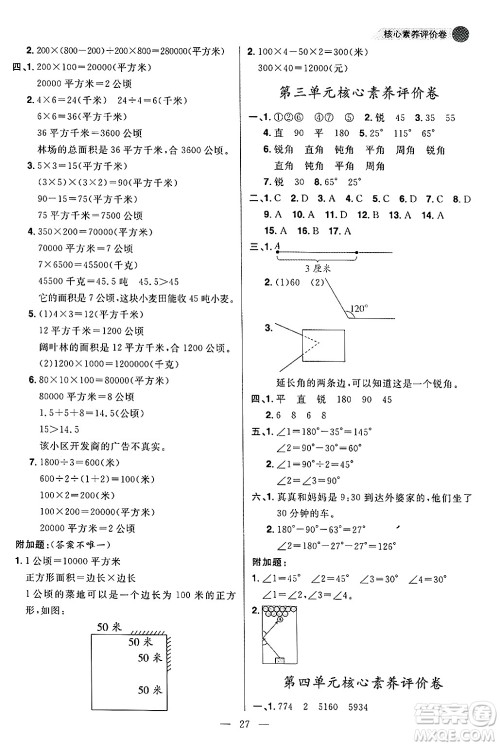 核心素养评价卷
2. 200×(50×2)=20000(平方米)
5. 200×100=20000(平方米)
四、1. 200×100=20000(平方米)
20000 平方米=2 公顷
2. 4×6=24(千米) 24÷4=6(千米)
6×6=36(平方千米)
36 平方千米=3600 公顷
林场的总面积是 36 平方千米,合 3600 公顷。
3. 5×3=15(平方千米)
(3×5)×(3×2)=90(平方千米)
90-15=75(平方千米)
75 平方千米=7500 公顷
4. 350×200=70000(平方米)
70000 平方米=7 公顷
7×6500=45500(千克)
45500 千克=45.5 吨
45.5 吨>45 吨
它的面积是 7 公顷,这块小麦田能收 45 吨小麦。
5. (1)4×3=12(平方千米)
12 平方千米=1200 公顷
阔叶林的面积是 12 平方千米,合 1200 公顷。
6. 80×10×100=80000(平方米)
80000 平方米=8 公顷
1.5÷5+8=14.5(公顷)
15>14.5
该小区开发商的广告不真实。
7. 1800÷3=600(米)
600÷2÷(2+1)=100(米)
100×2=200(米)
200×100=20000(平方米)
20000 平方米=2 公顷
附加题:(答案不唯一)
1. 1 公顷=10000 平方米
正方形面积=边长×边长
1 公顷的菜地可以是一个边长为 100 米的正方形,如图:
50 米
50 米
50 米
50 米
2. 100×4-50×2=300(米)
300×40=12000(元)
第三单元核心素养评价卷
一、1. ①②⑥ ④⑤ 2. 锐 45 3. 35 55
4. 直 90 平 180 5. 25°
6. 锐角 直角 钝角 平角 周角 锐角
直角 钝角 直角 钝角
7. 锐 8. 65° 25° 9. 30°
二、1. C 2. A 3. B 4. C 5. A 6. C 7. B 8. D
9. D 10. A 11. C 12. C 13. D 14. B
15. A 16. A 17. B
三、1. A
3 厘米
2. (1)60 (2)
120°
3.
延长角的两条边,可以看出这是一个锐角。
四、1. 平 直 锐 180 90 45
2. 6 8 6 8
五、1. ∠1=180°-35°=145°
2. ∠1=180°-90°-45°=45°
3. ∠2=90°
六、1. 真真和妈妈是 9:30 到达外婆家的,他们坐了 30 分钟的车。
2. 180°-90°-30°=60°
3. ∠1=30° ∠2=60°
附加题:
1. ∠1=45° ∠2=45° ∠3=45°
2.
第四单元核心素养评价卷
一、1. 774 2 5160 5934
27